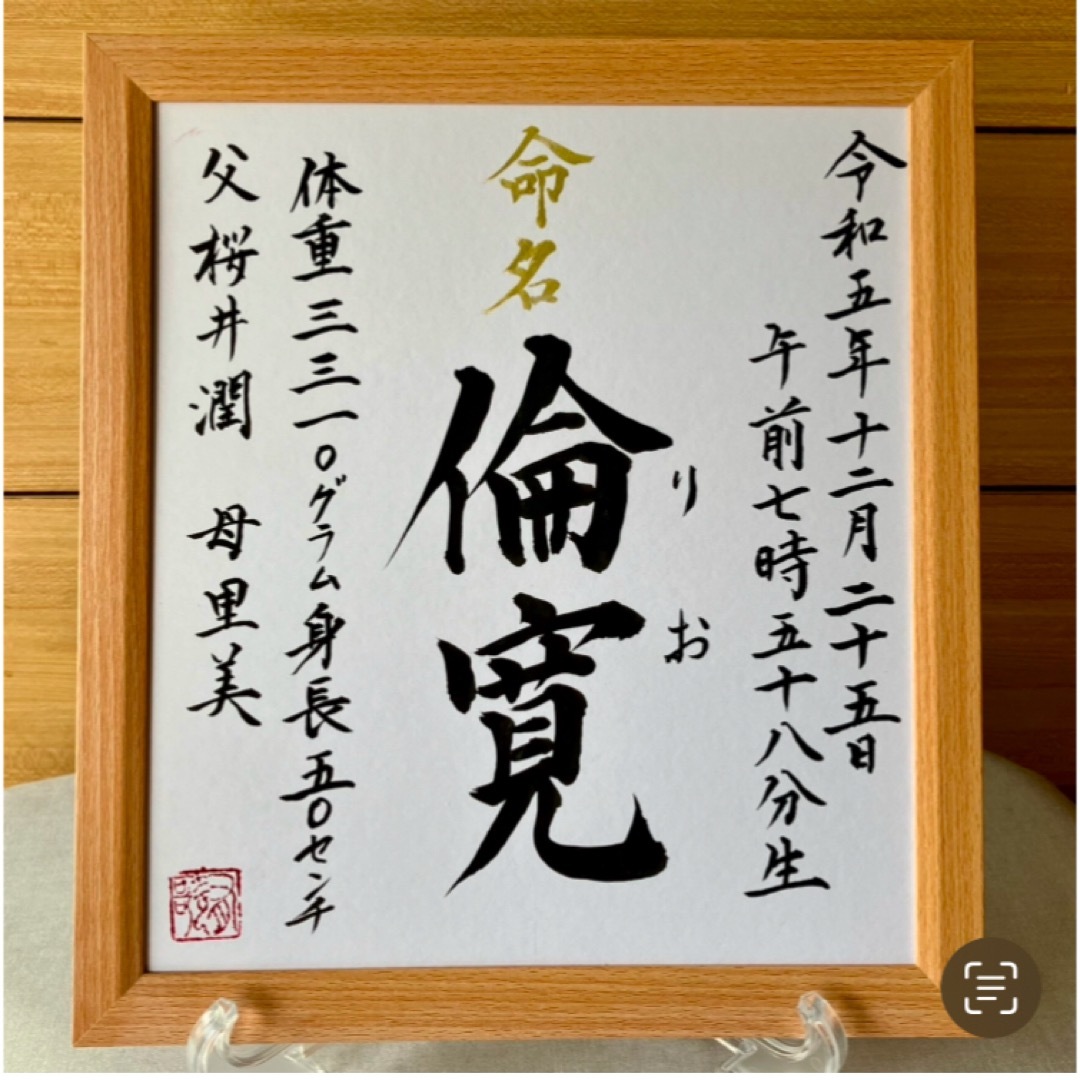 令和五年十二月二十五日
午前七時五十八分生
命名
倫寛
りお
体重三三一〇グラム身長五〇センチ
父桜井潤 母里美